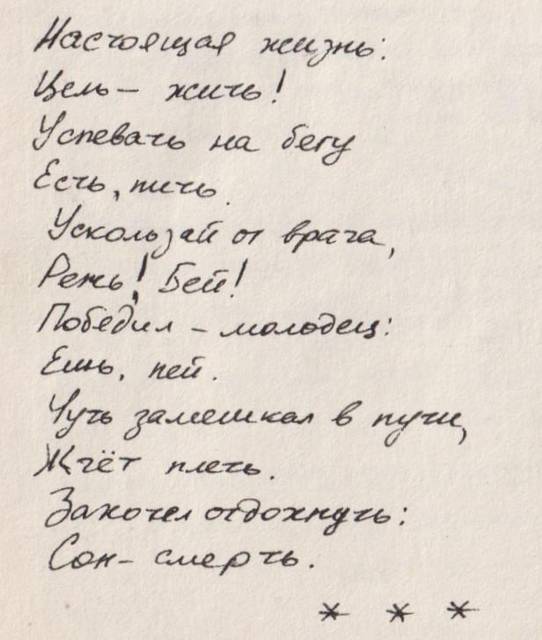 Настоящая жизнь:
Цель – жить!
Успевать на бегу
Есть, пить.
Ускользай от врача,
Режь! Бей!
Победил – молодец:
Ешь, пей.
Чуть замешкал в пути,
Ждёт плеть.
Захотел отдохнуть:
Сон – смерть.
* * *